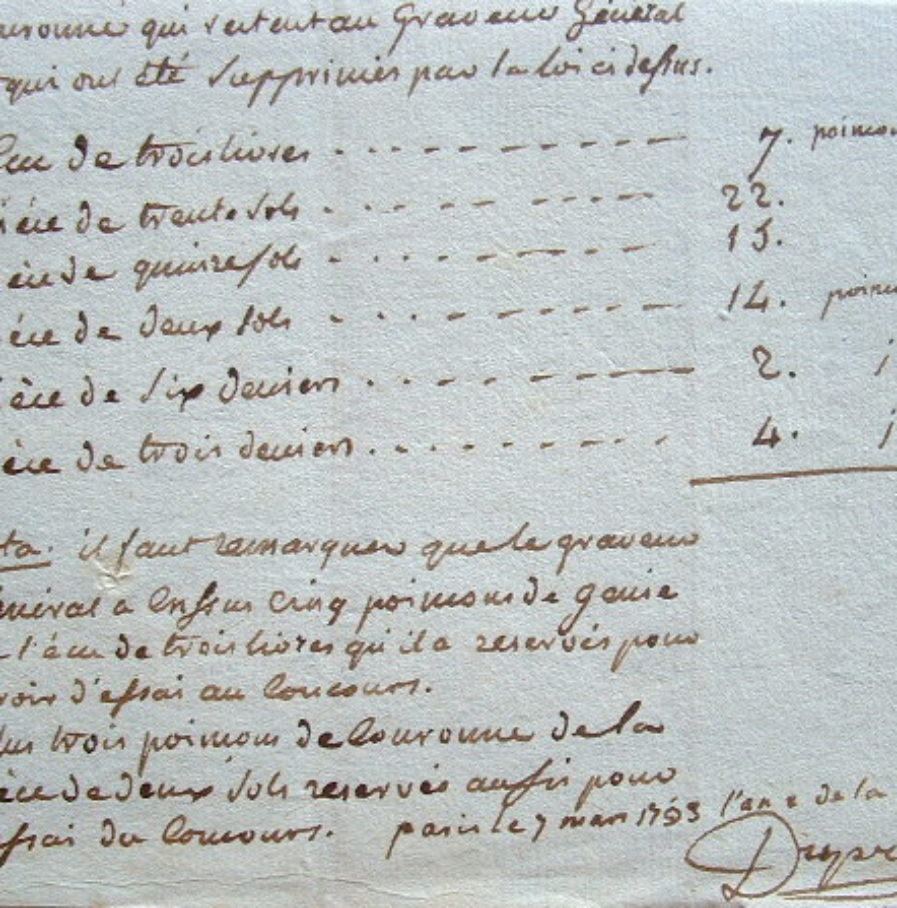 couronne qui restent au Graveur Général
qui ont été Supprimés par la loi ci dessus.
Écu de trois livres - - - - - - - - - 7. poinçon
pièce de trente sols - - - - - - - - - 22.
pièce de quinze sols - - - - - - - - - 15.
pièce de deux sols - - - - - - - - - 14. poinç
pièce de six deniers - - - - - - - - - 2. i
pièce de trois deniers - - - - - - - - - 4. i
ta. il faut remarquer que le graveur
énéral a Ensus Cinq poinçons de Genie
l'écu de trois livres qu'il a reservés pour
voir d'essai au Concours.
lus trois poinçons de Couronne de la
ièce de deux Sols reservés aussi pour
essai du Concours. paris le 7 mars 1793 l'an 2 de la
Dupré